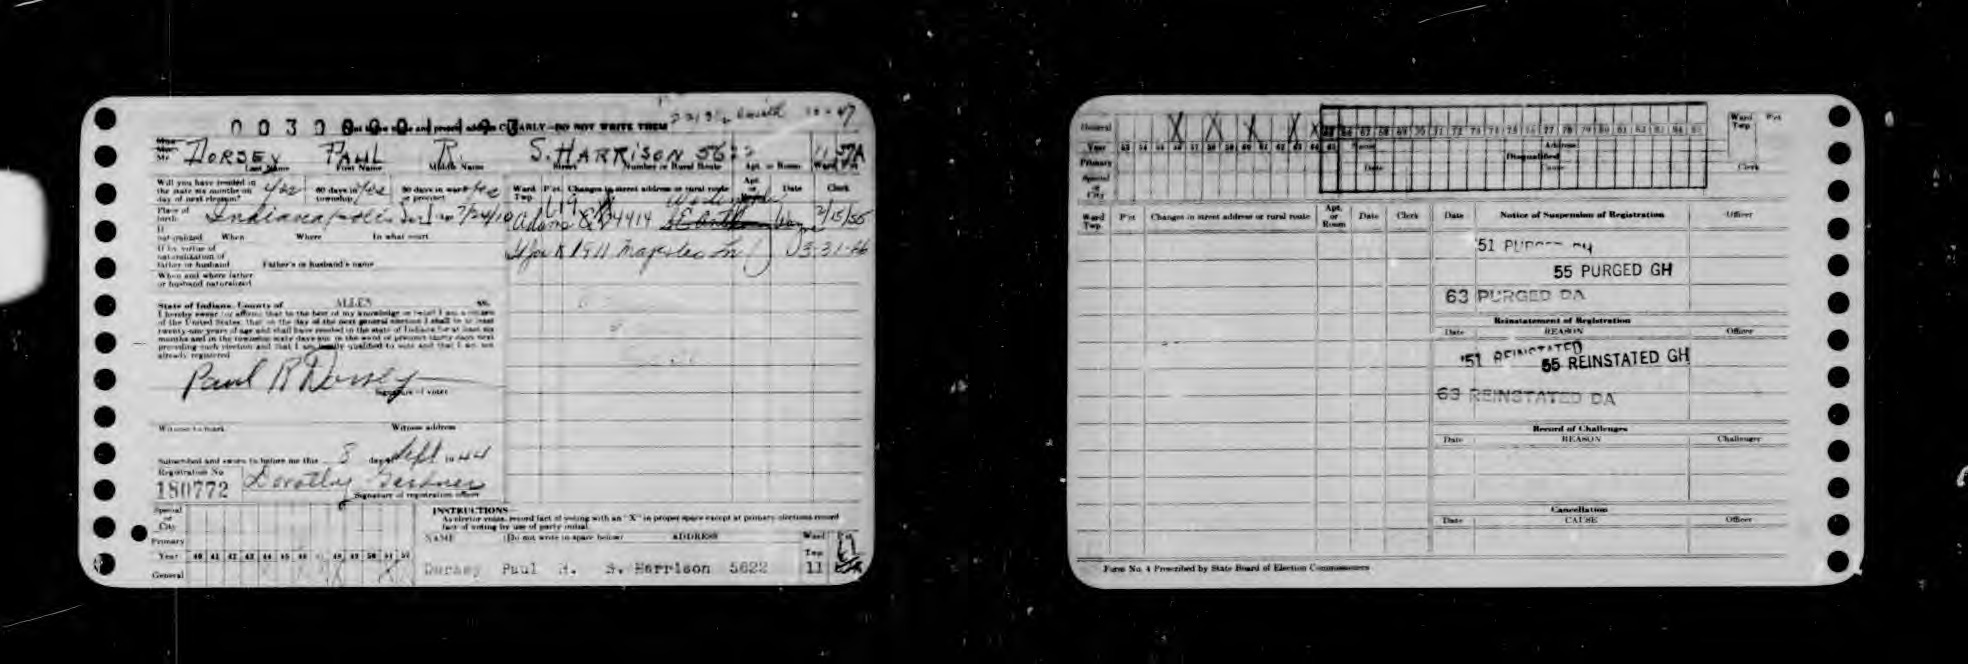 CLEARLY—DO NOT WRITE THEM
DORSEY PAUL R. S. HARRISON 5622 11
Last Name First Name Middle Name Street Number or Rural Route Apt. or Room Ward Pct
Will you have resided in the state six months on day of next election? Yes 60 days in township? Yes 30 days in ward or precinct Yes
Ward Twp. P'ct. Changes in street address or rural route Apt. or Room Date Clerk
Place of birth Indianapolis Ind
Adams 4414 2/15/55
If naturalized When Where In what court
1911 Ln 3-31-66
If by virtue of naturalization of father or husband Father's or husband's name
When and where father or husband naturalized
State of Indiana, County of ALLEN ss.
I hereby swear (or affirm) that to the best of my knowledge or belief I am a citizen
of the United States, that on the day of the next general election I shall be at least
twenty-one years of age and shall have resided in the state of Indiana for at least six
months and in the township sixty days and in the ward or precinct thirty days next
preceding such election and that I am legally qualified to vote and that I am not
already registered
Paul R Dorsey
Signature of voter
Witness to mark Witness address
Subscribed and sworn to before me this 8 day Sept 1944
Registration No
180772 Dorothy Gardner
Signature of registration officer
Special or City
Primary
Year 40 41 42 43 44 45 46 47 48 49 50 51 52
General
INSTRUCTIONS
As elector votes, record fact of voting with an "X" in proper space except at primary elections record
fact of voting by use of party initial.
NAME (Do not write in space below) ADDRESS Ward Twp P'ct
Dorsey Paul R. S. Harrison 5622 11
General X X X X X
Year 53 54 55 56 57 58 59 60 61 62 63 64 65 66 67 68 69 70 71 72 73 74 75 76 77 78 79 80 81 82 83 84 85
Primary
Special or City
Name Address
Disqualified
Date Cause
Ward Twp. P'ct
Clerk
Ward Twp. P'ct Changes in street address or rural route Apt. or Room Date Clerk
Date Notice of Suspension of Registration Officer
'51 PURGED
55 PURGED GH
63 PURGED DA
Reinstatement of Registration
Date REASON Officer
'51 REINSTATED
55 REINSTATED GH
63 REINSTATED DA
Record of Challenges
Date REASON Challenger
Cancellation
Date CAUSE Officer
Form No. 4 Prescribed by State Board of Election Commissioners